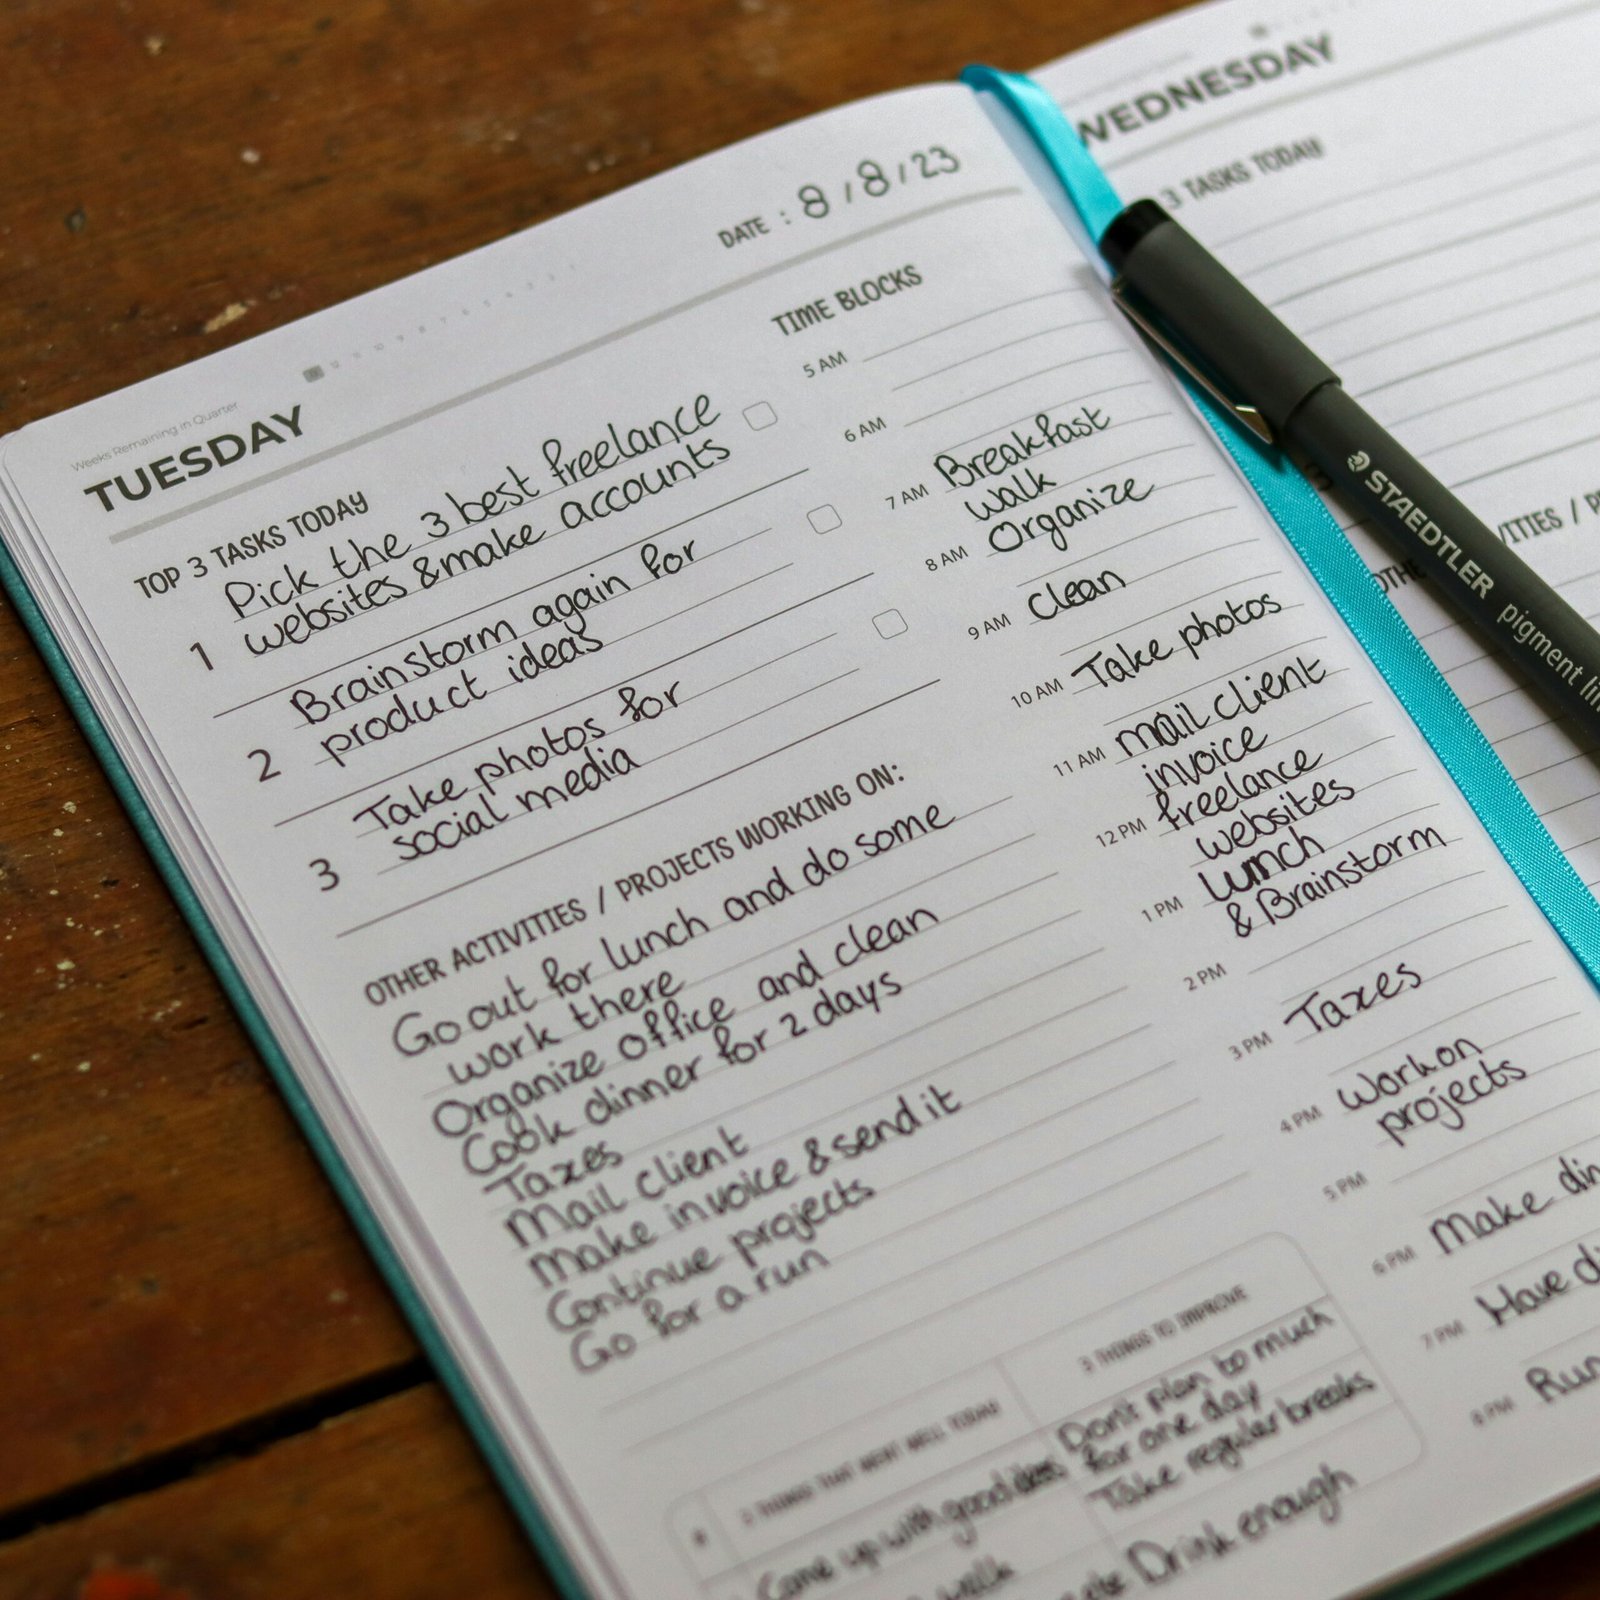 Weeks Remaining in Quarter
TUESDAY
DATE : 8/8/23
TOP 3 TASKS TODAY
1 Pick the 3 best freelance
websites & make accounts
2 Brainstorm again for
product ideas
3 Take photos for
social media
OTHER ACTIVITIES / PROJECTS WORKING ON:
Go out for lunch and do some
work there
Organize office and clean
Cook dinner for 2 days
Taxes
Mail client
Make invoice & send it
Continue projects
Go for a run
TIME BLOCKS
5 AM
6 AM
7 AM Breakfast
walk
8 AM Organize
9 AM Clean
10 AM Take photos
11 AM mail client
invoice
12 PM freelance
websites
1 PM lunch
& Brainstorm
2 PM
3 PM Taxes
4 PM Work on
projects
5 PM
6 PM Make
7 PM Have
8 PM Run
THINGS THAT WENT WELL TODAY
Come up with good ideas
walk
3 THINGS TO IMPROVE
Don't plan to much
for one day
Take regular breaks
Drink enough
WEDNESDAY
3 TASKS TODAY
3
STAEDTLER pigment